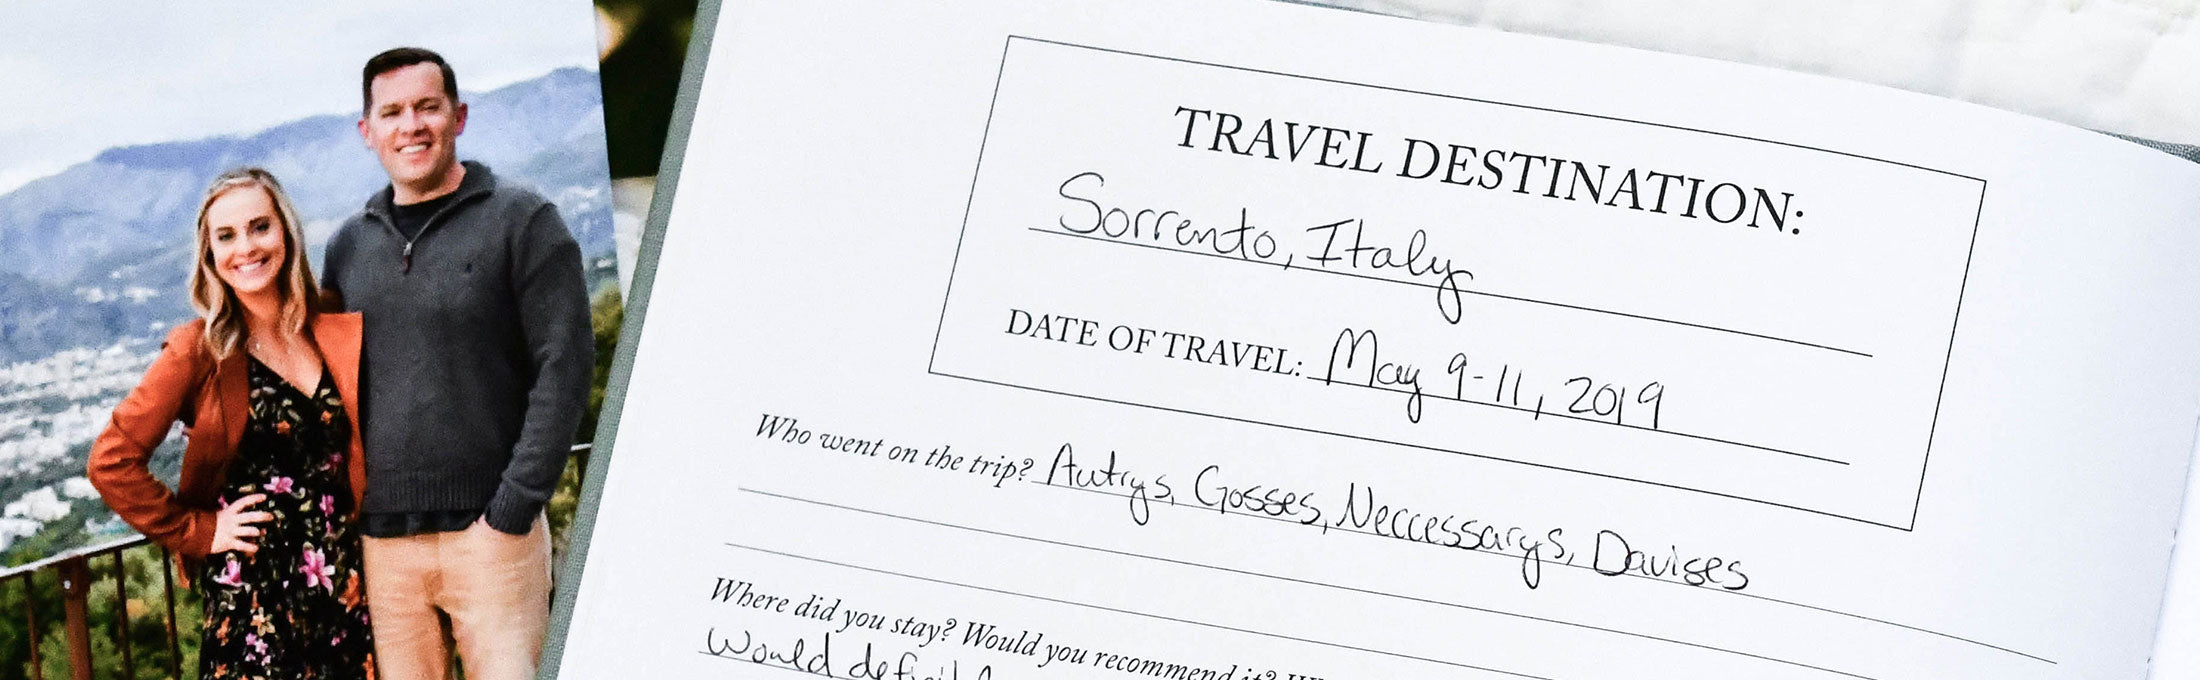 TRAVEL DESTINATION:
Sorrento, Italy
DATE OF TRAVEL: May 9-11, 2019
Who went on the trip? Autrys, Gosses, Neccessarys, Davises
Where did you stay? Would you recommend it?
Would